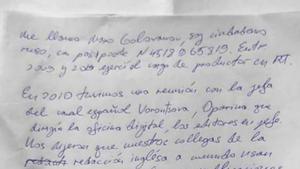 Me llamo Max Golovanov, soy ciudadano
ruso, con pasaporte N 4513 965819. Entre
2009 y 20 ejercí el cargo de productor en RT.
En 2010 tuvimos una reunión con la jefa
del canal español Vorontsova, Oparina que
dirigía la oficina digital, los editores en jefe.
Nos dijeron que nuestros collegas de la
redacción inglesa a menudo usan